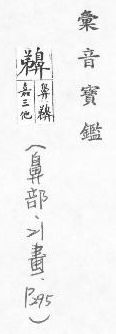 彙音寶鑑
嘉三他
(鼻部、21畫、P295)